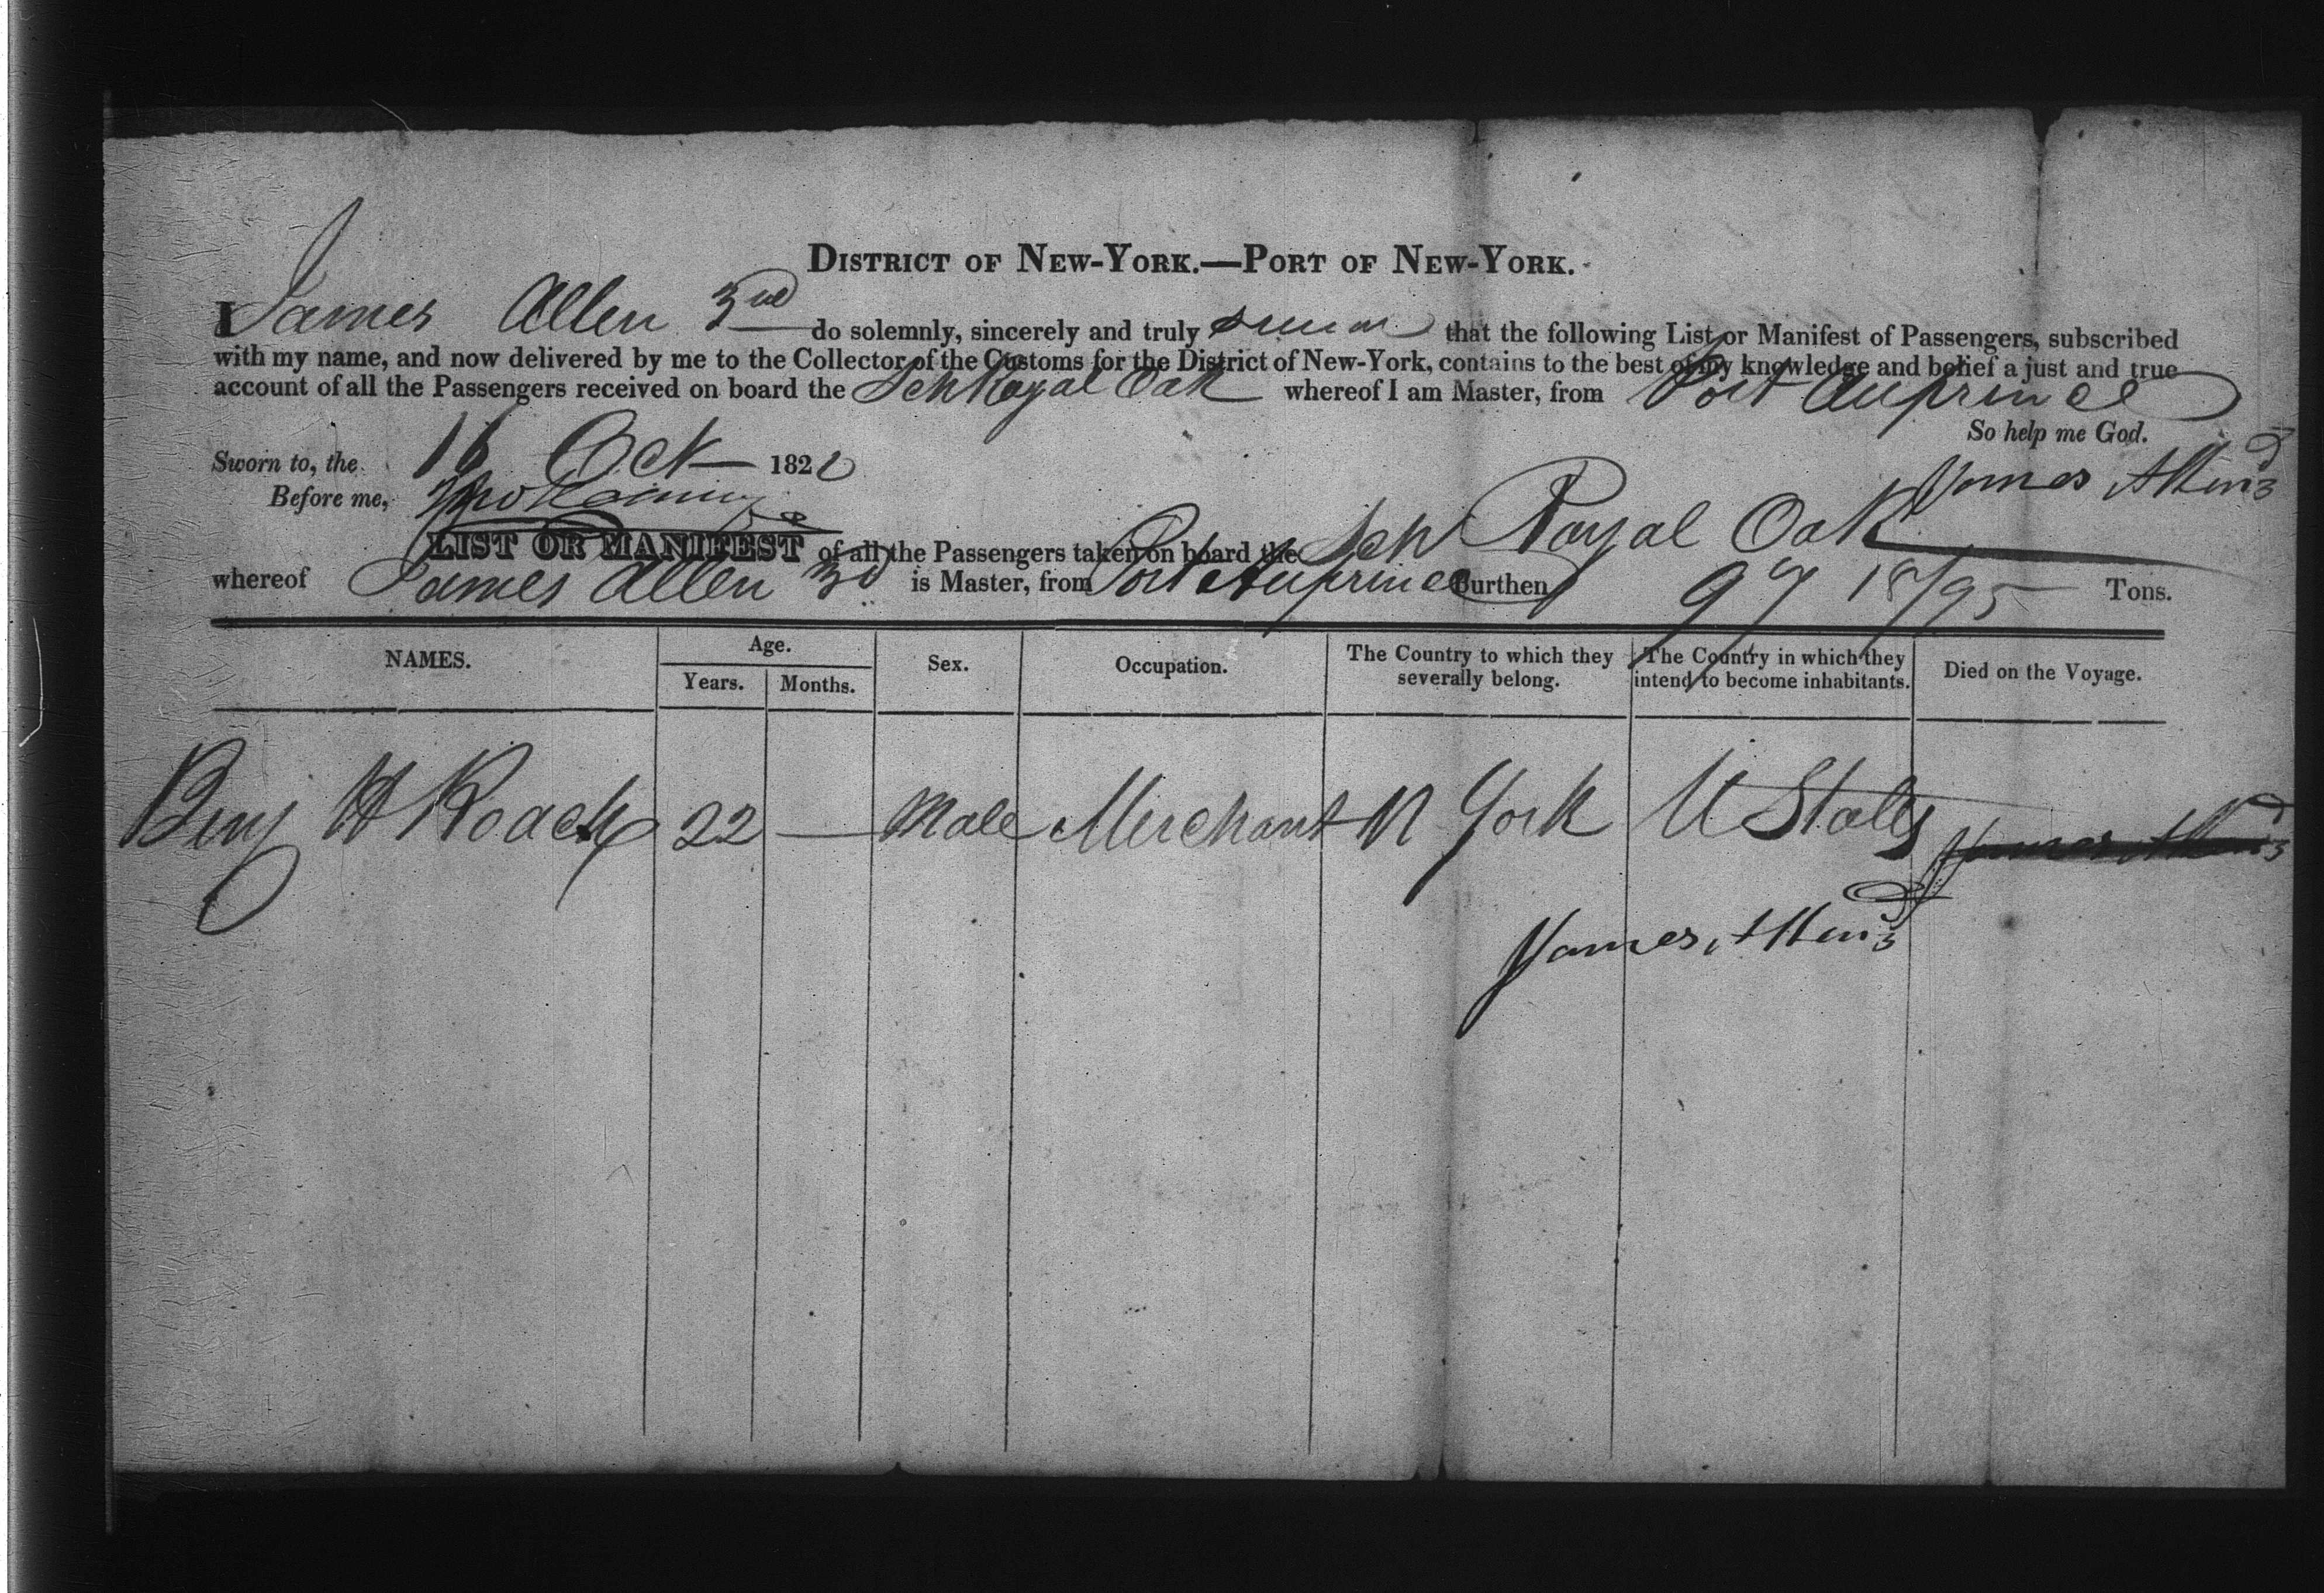 DISTRICT OF NEW-YORK.—PORT OF NEW-YORK.
I James Allen 3rd do solemnly, sincerely and truly swear that the following List or Manifest of Passengers, subscribed
with my name, and now delivered by me to the Collector of the Customs for the District of New-York, contains to the best of my knowledge and belief a just and true
account of all the Passengers received on board the Sch Royal Oak whereof I am Master, from Port Auprince
So help me God.
Sworn to, the 16 Oct 1822
James Allen 3d
Before me,
LIST OR MANIFEST of all the Passengers taken on board the Sch Royal Oak
whereof James Allen 3d is Master, from Port Auprince Burthen 97 18/95 Tons.
NAMES. Age. Sex. Occupation. The Country to which they severally belong. The Country in which they intend to become inhabitants. Died on the Voyage.
Years. Months.
Benj H Roach 22 — Male Merchant N York U States James Allen 3d
James Allen 3d